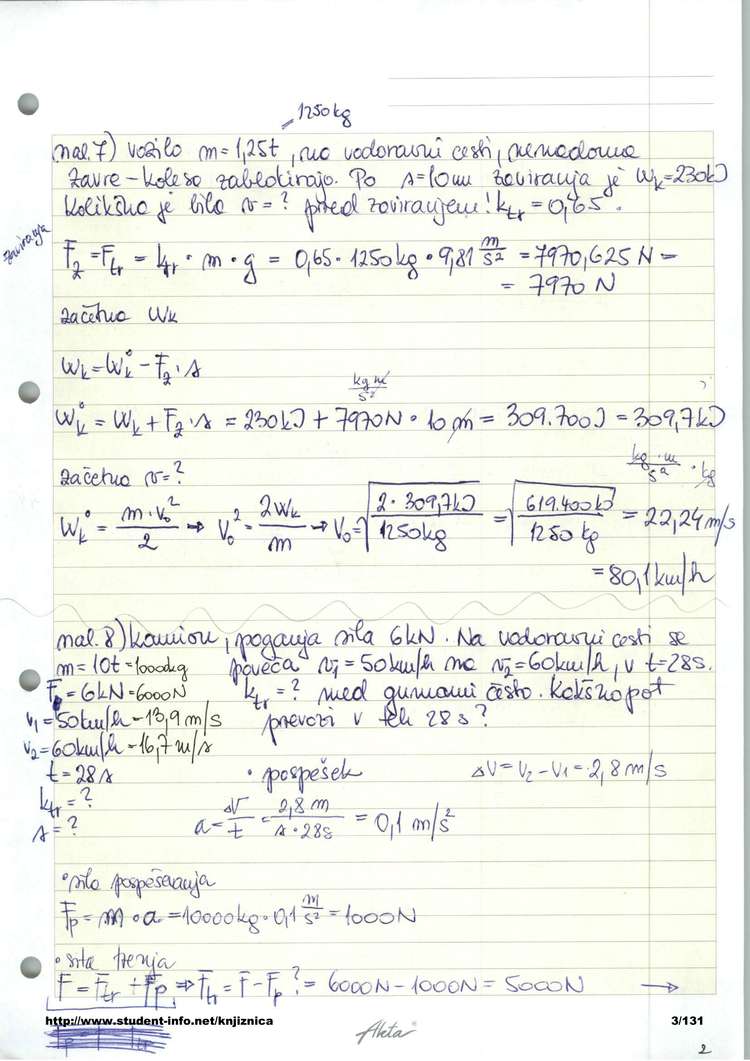 1250kg
nal.7) vozilo m=1,25t, na vodoravni cesti, nenadoma
zavre-kolesa zablokirajo. Po s=10m zaviranja je Wk=230kJ
Kolikšna je bila v=? pred zaviranjem! ktr=0,65.
zaviranja
Fz=Ftr = ktr·m·g = 0,65·1250kg·9,81 m/s² = 7970,625 N =
= 7970 N
začetna Wk
Wk=Wk° - Fz·s
kg m/s²
Wk° = Wk + Fz·s = 230kJ + 7970N · 10 m = 309.700J = 309,7kJ
začetna v=?
kg·m/s² · kg
Wk° = m·v₀²/2 → v₀² = 2Wk/m → v₀=√(2·309,7kJ/1250kg) = √(619.400kJ/1250 kg) = 22,24 m/s
= 80,1km/h
nal.8) kamion, poganja sila 6kN. Na vodoravni cesti se
m=10t=1000kg poveča v1=50km/h na v2=60km/h, v t=28s.
F=6kN=6000N ktr=? med gumami cesto. Kakšno pot
v1=50km/h-13,9 m/s prevozi v teh 28s?
v2=60km/h-16,7m/s
t=28s · pospešek ΔV=V2-V1=2,8m/s
ktr=?
s=? a=ΔV/t = 2,8 m/s·28s = 0,1 m/s²
· sila pospeševanja
Fp=m·a=10000kg·0,1 m/s²=1000N
· sila trenja
F=Ftr+Fp ⇒ Ftr=F-Fp ?= 6000N-1000N=5000N →
http://www.student-info.net/knjiznica
3/131
Akta
2